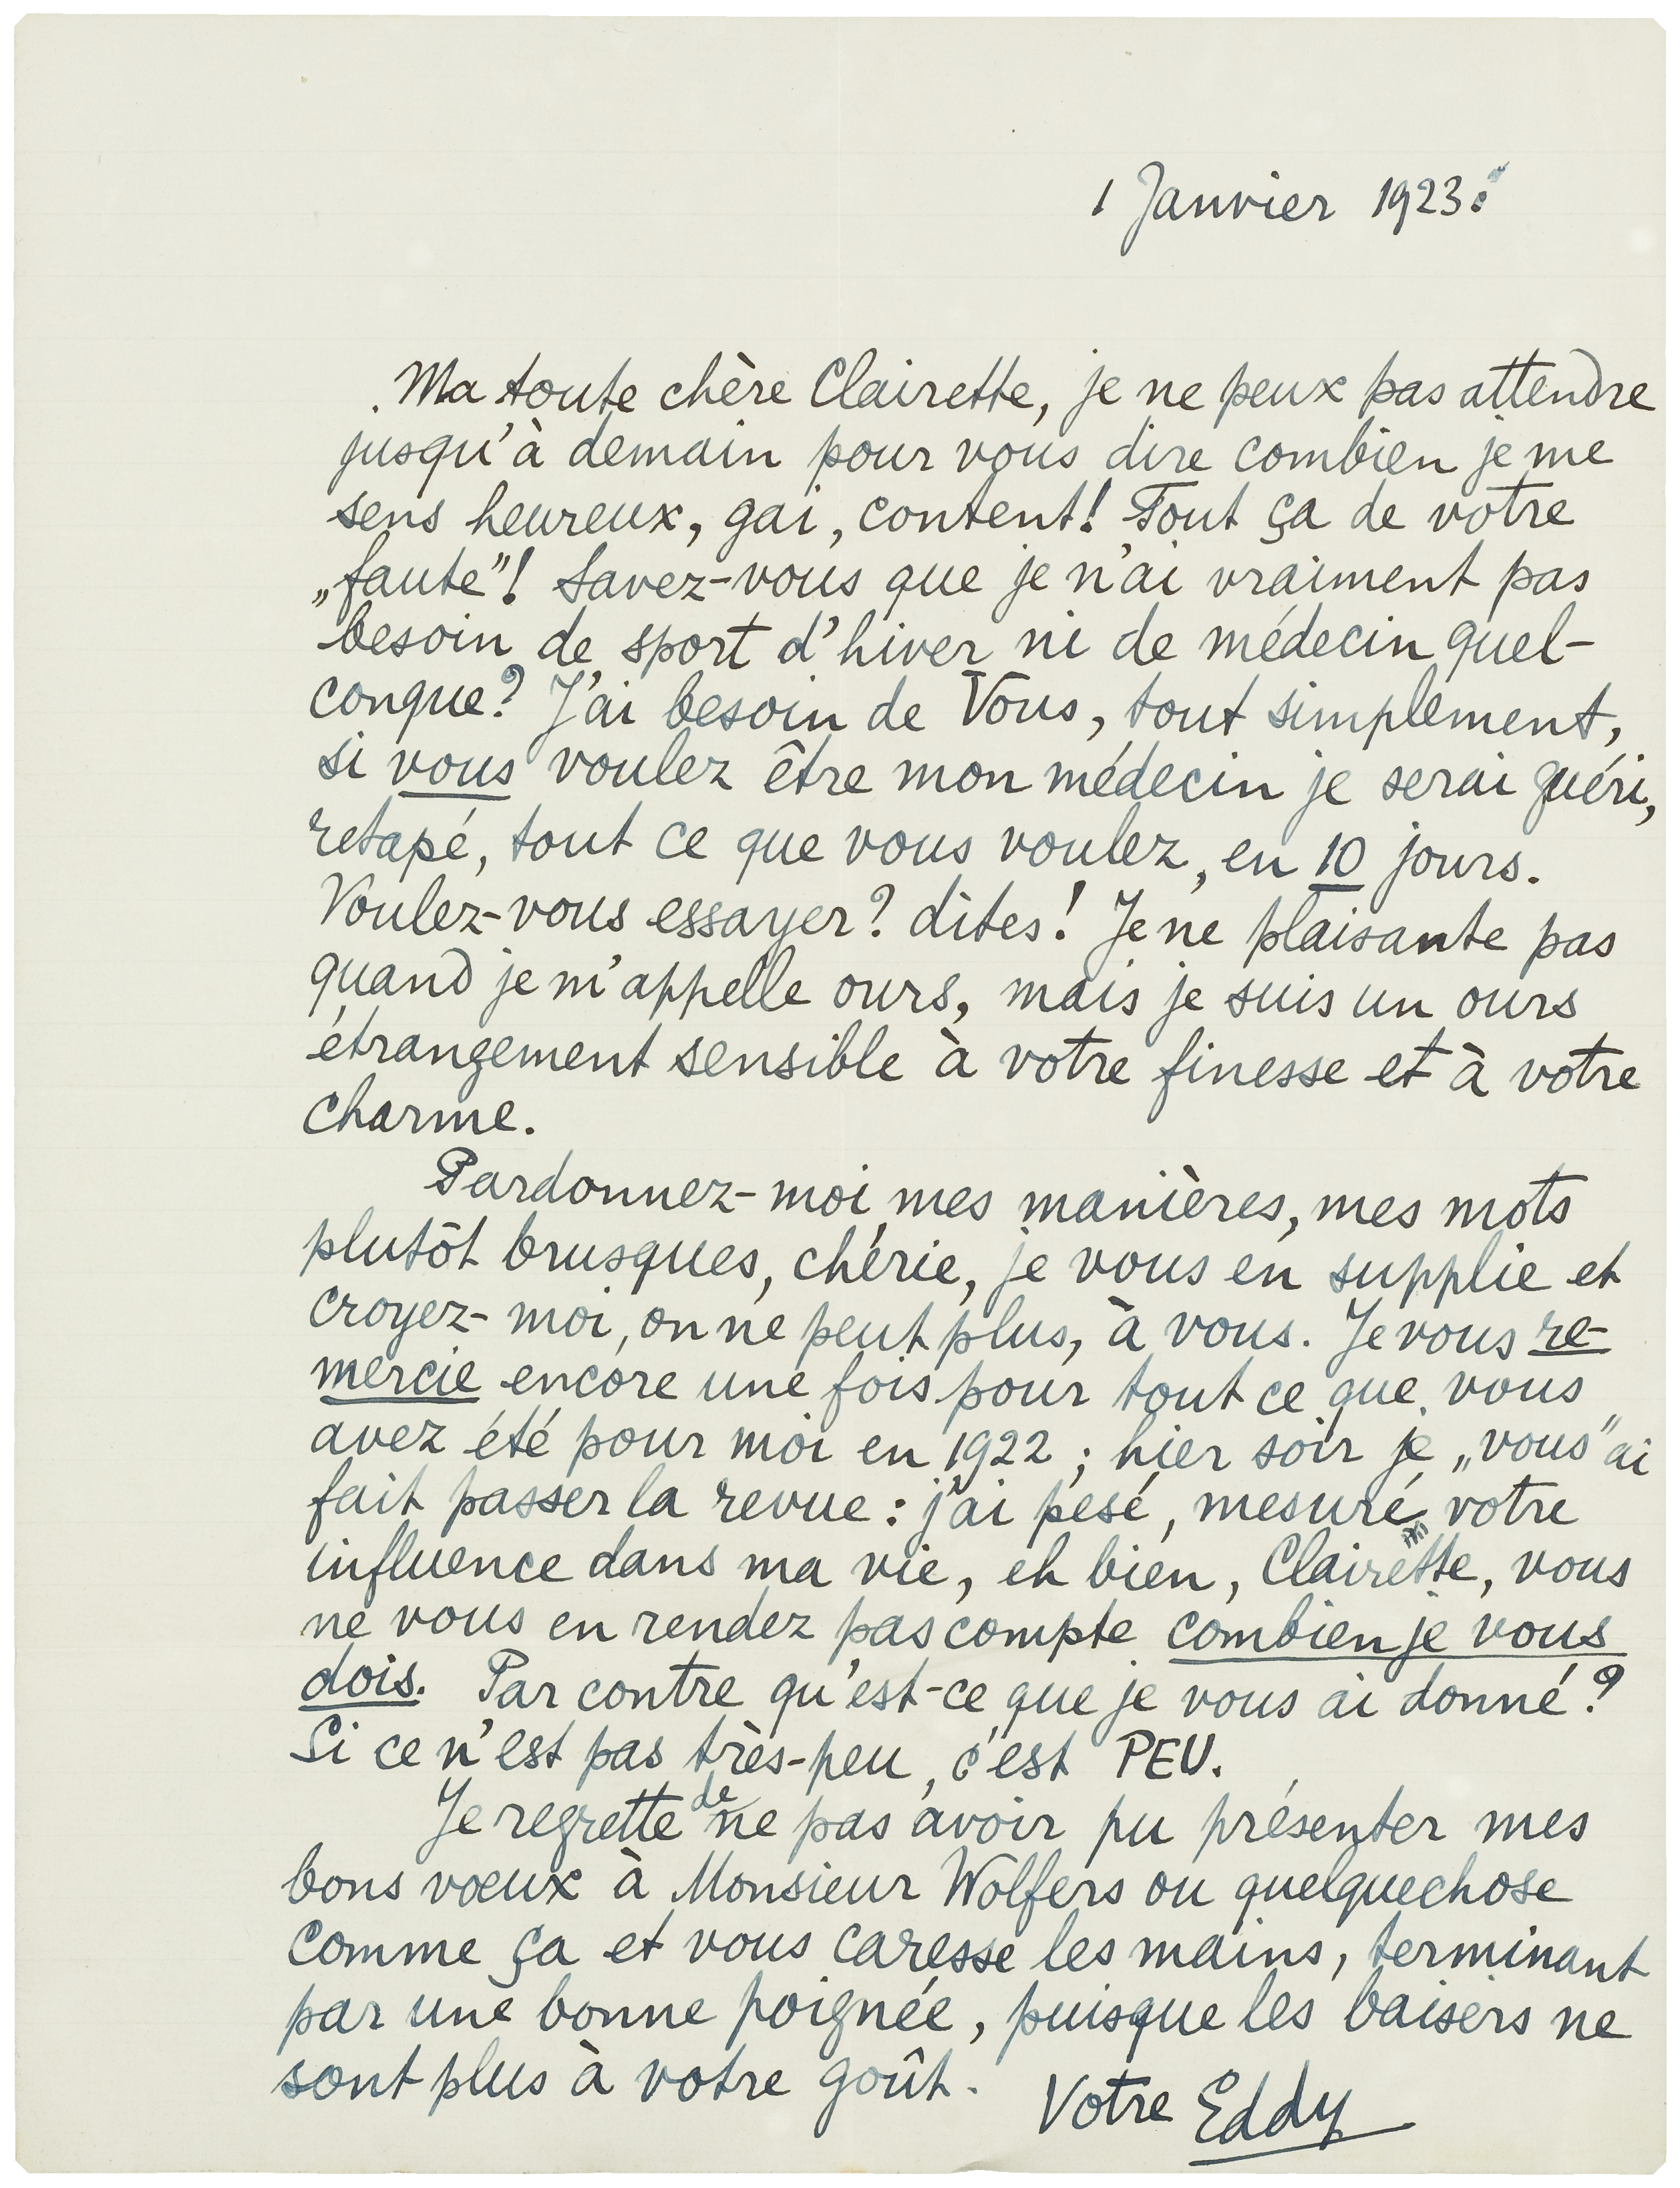 1 Janvier 1923.
Ma toute chère Clairette, je ne peux pas attendre
jusqu'à demain pour vous dire combien je me
sens heureux, gai, content! Tout ça de votre
„faute"! Savez-vous que je n'ai vraiment pas
besoin de sport d'hiver ni de médecin quel-
conque? J'ai besoin de Vous, tout simplement,
si vous voulez être mon médecin je serai guéri,
retapé, tout ce que vous voulez, en 10 jours.
Voulez-vous essayer? dites! Je ne plaisante pas
quand je m'appelle ours, mais je suis un ours
étrangement sensible à votre finesse et à votre
charme.
Pardonnez-moi mes manières, mes mots
plutôt brusques, chérie, je vous en supplie et
croyez-moi, on ne peut plus, à vous. Je vous re-
mercie encore une fois pour tout ce que vous
avez été pour moi en 1922; hier soir je „vous" ai
fait passer la revue: j'ai pesé, mesuré votre
influence dans ma vie, eh bien, Clairette, vous
ne vous en rendez pas compte combien je vous
dois. Par contre qu'est-ce que je vous ai donné?
Si ce n'est pas très-peu, c'est PEU.
Je regrette de ne pas avoir pu présenter mes
bons vœux à Monsieur Wolfers ou quelquechose
comme ça et vous caresse les mains, terminant
par une bonne poignée, puisque les baisers ne
sont plus à votre goût.
Votre Eddy